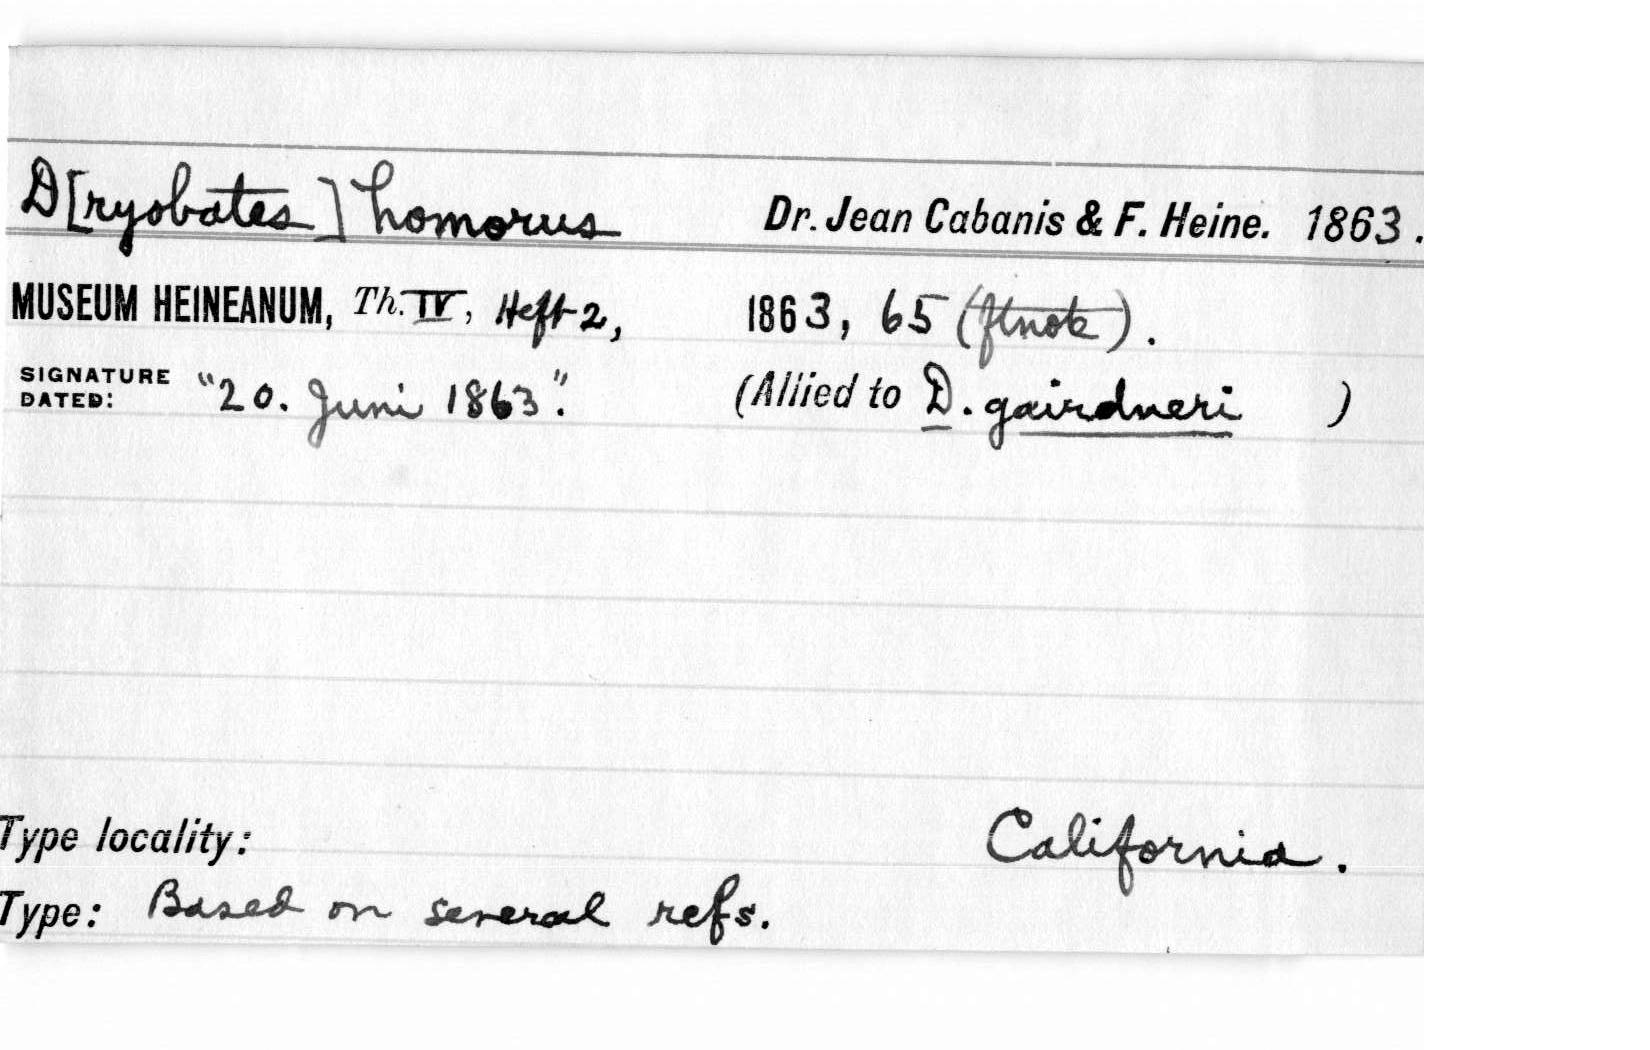 D[ryobates] homorus Dr. Jean Cabanis & F. Heine. 1863.
MUSEUM HEINEANUM, Th. IV, Heft 2, 1863, 65 (ftnote).
SIGNATURE DATED: "20. Juni 1863". (Allied to D. gairdneri )
Type locality: California.
Type: Based on several refs.